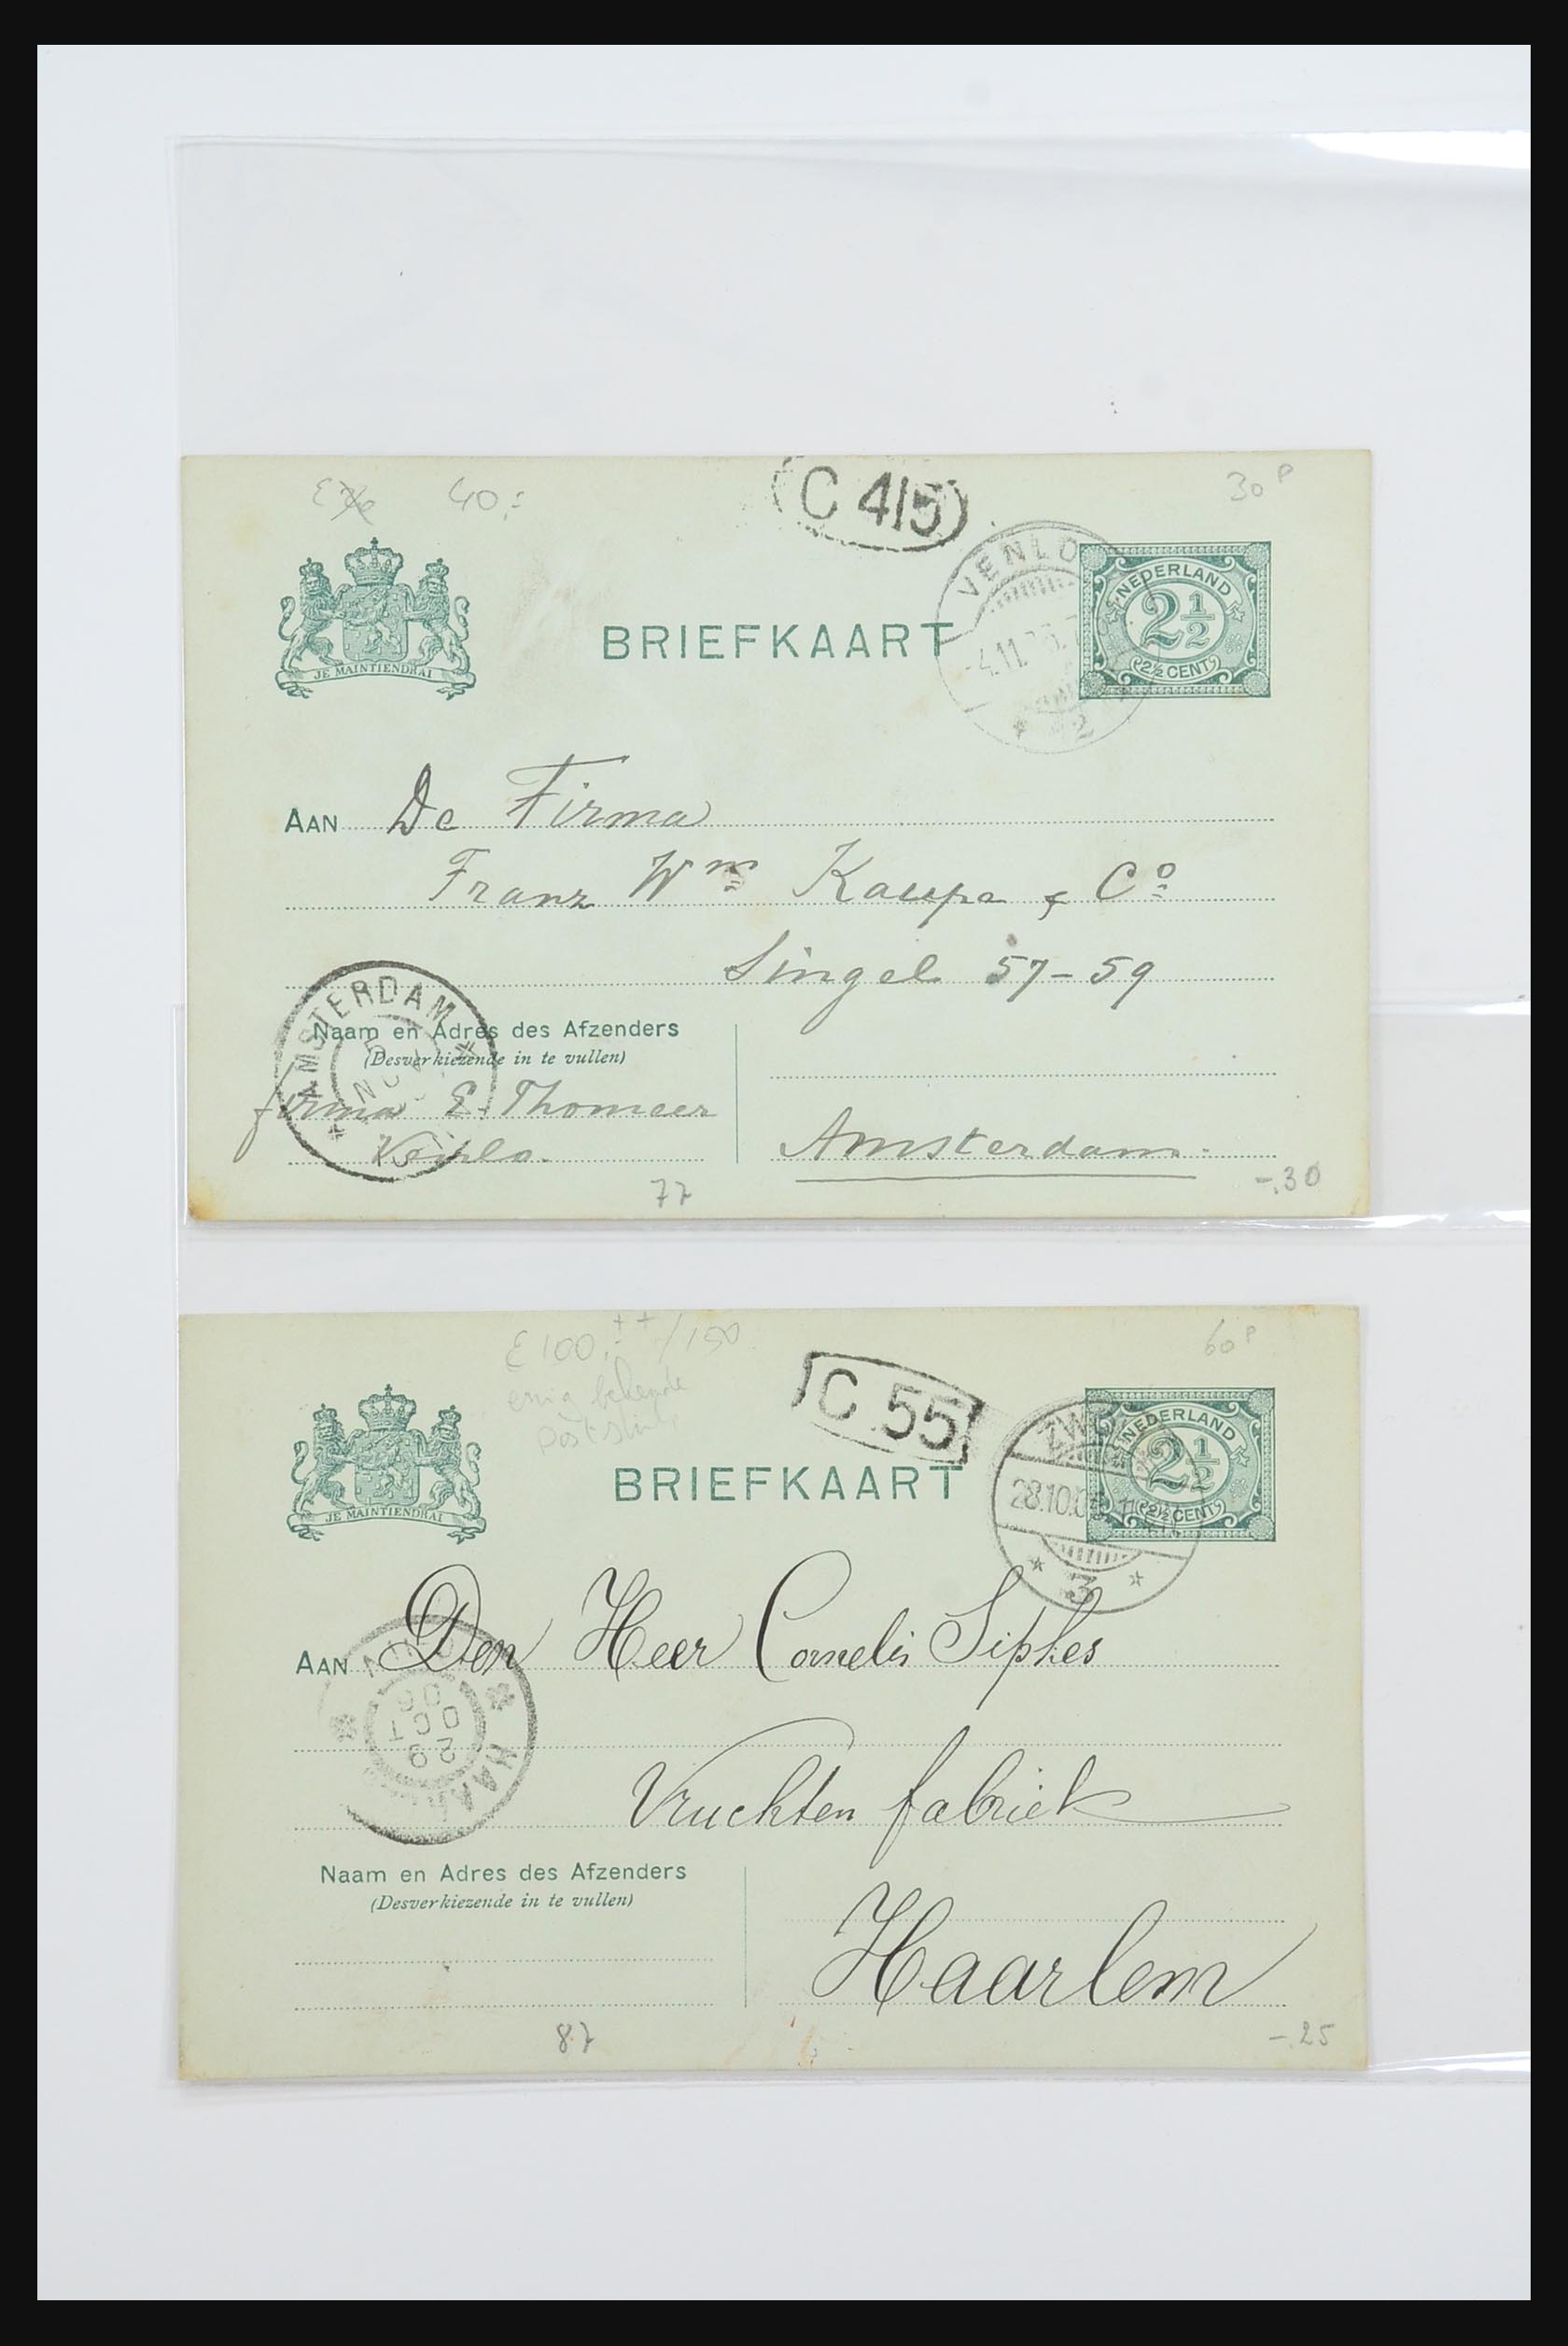 40,-
C 4/5
30 P
VENLO
NEDERLAND
2½
2½ CENT
JE MAINTIENDRAI
BRIEFKAART
2
AAN De Firma
Franz Wm Kaupe & Co
Singel 57-59
AMSTERDAM
5
NOV
Naam en Adres des Afzenders
(Desverkiezende in te vullen)
firma E. Thomeer
Venlo.
Amsterdam.
77
-.30
E 100,- ++ /150
enig bekende
60 P
C 55
NEDERLAND
2½
2½ CENT
28.10.0
3
JE MAINTIENDRAI
BRIEFKAART
AAN Den Heer Cornelis Siphes
29
OCT
06
Vruchten fabriek
Naam en Adres des Afzenders
(Desverkiezende in te vullen)
Haarlem
87
-.25